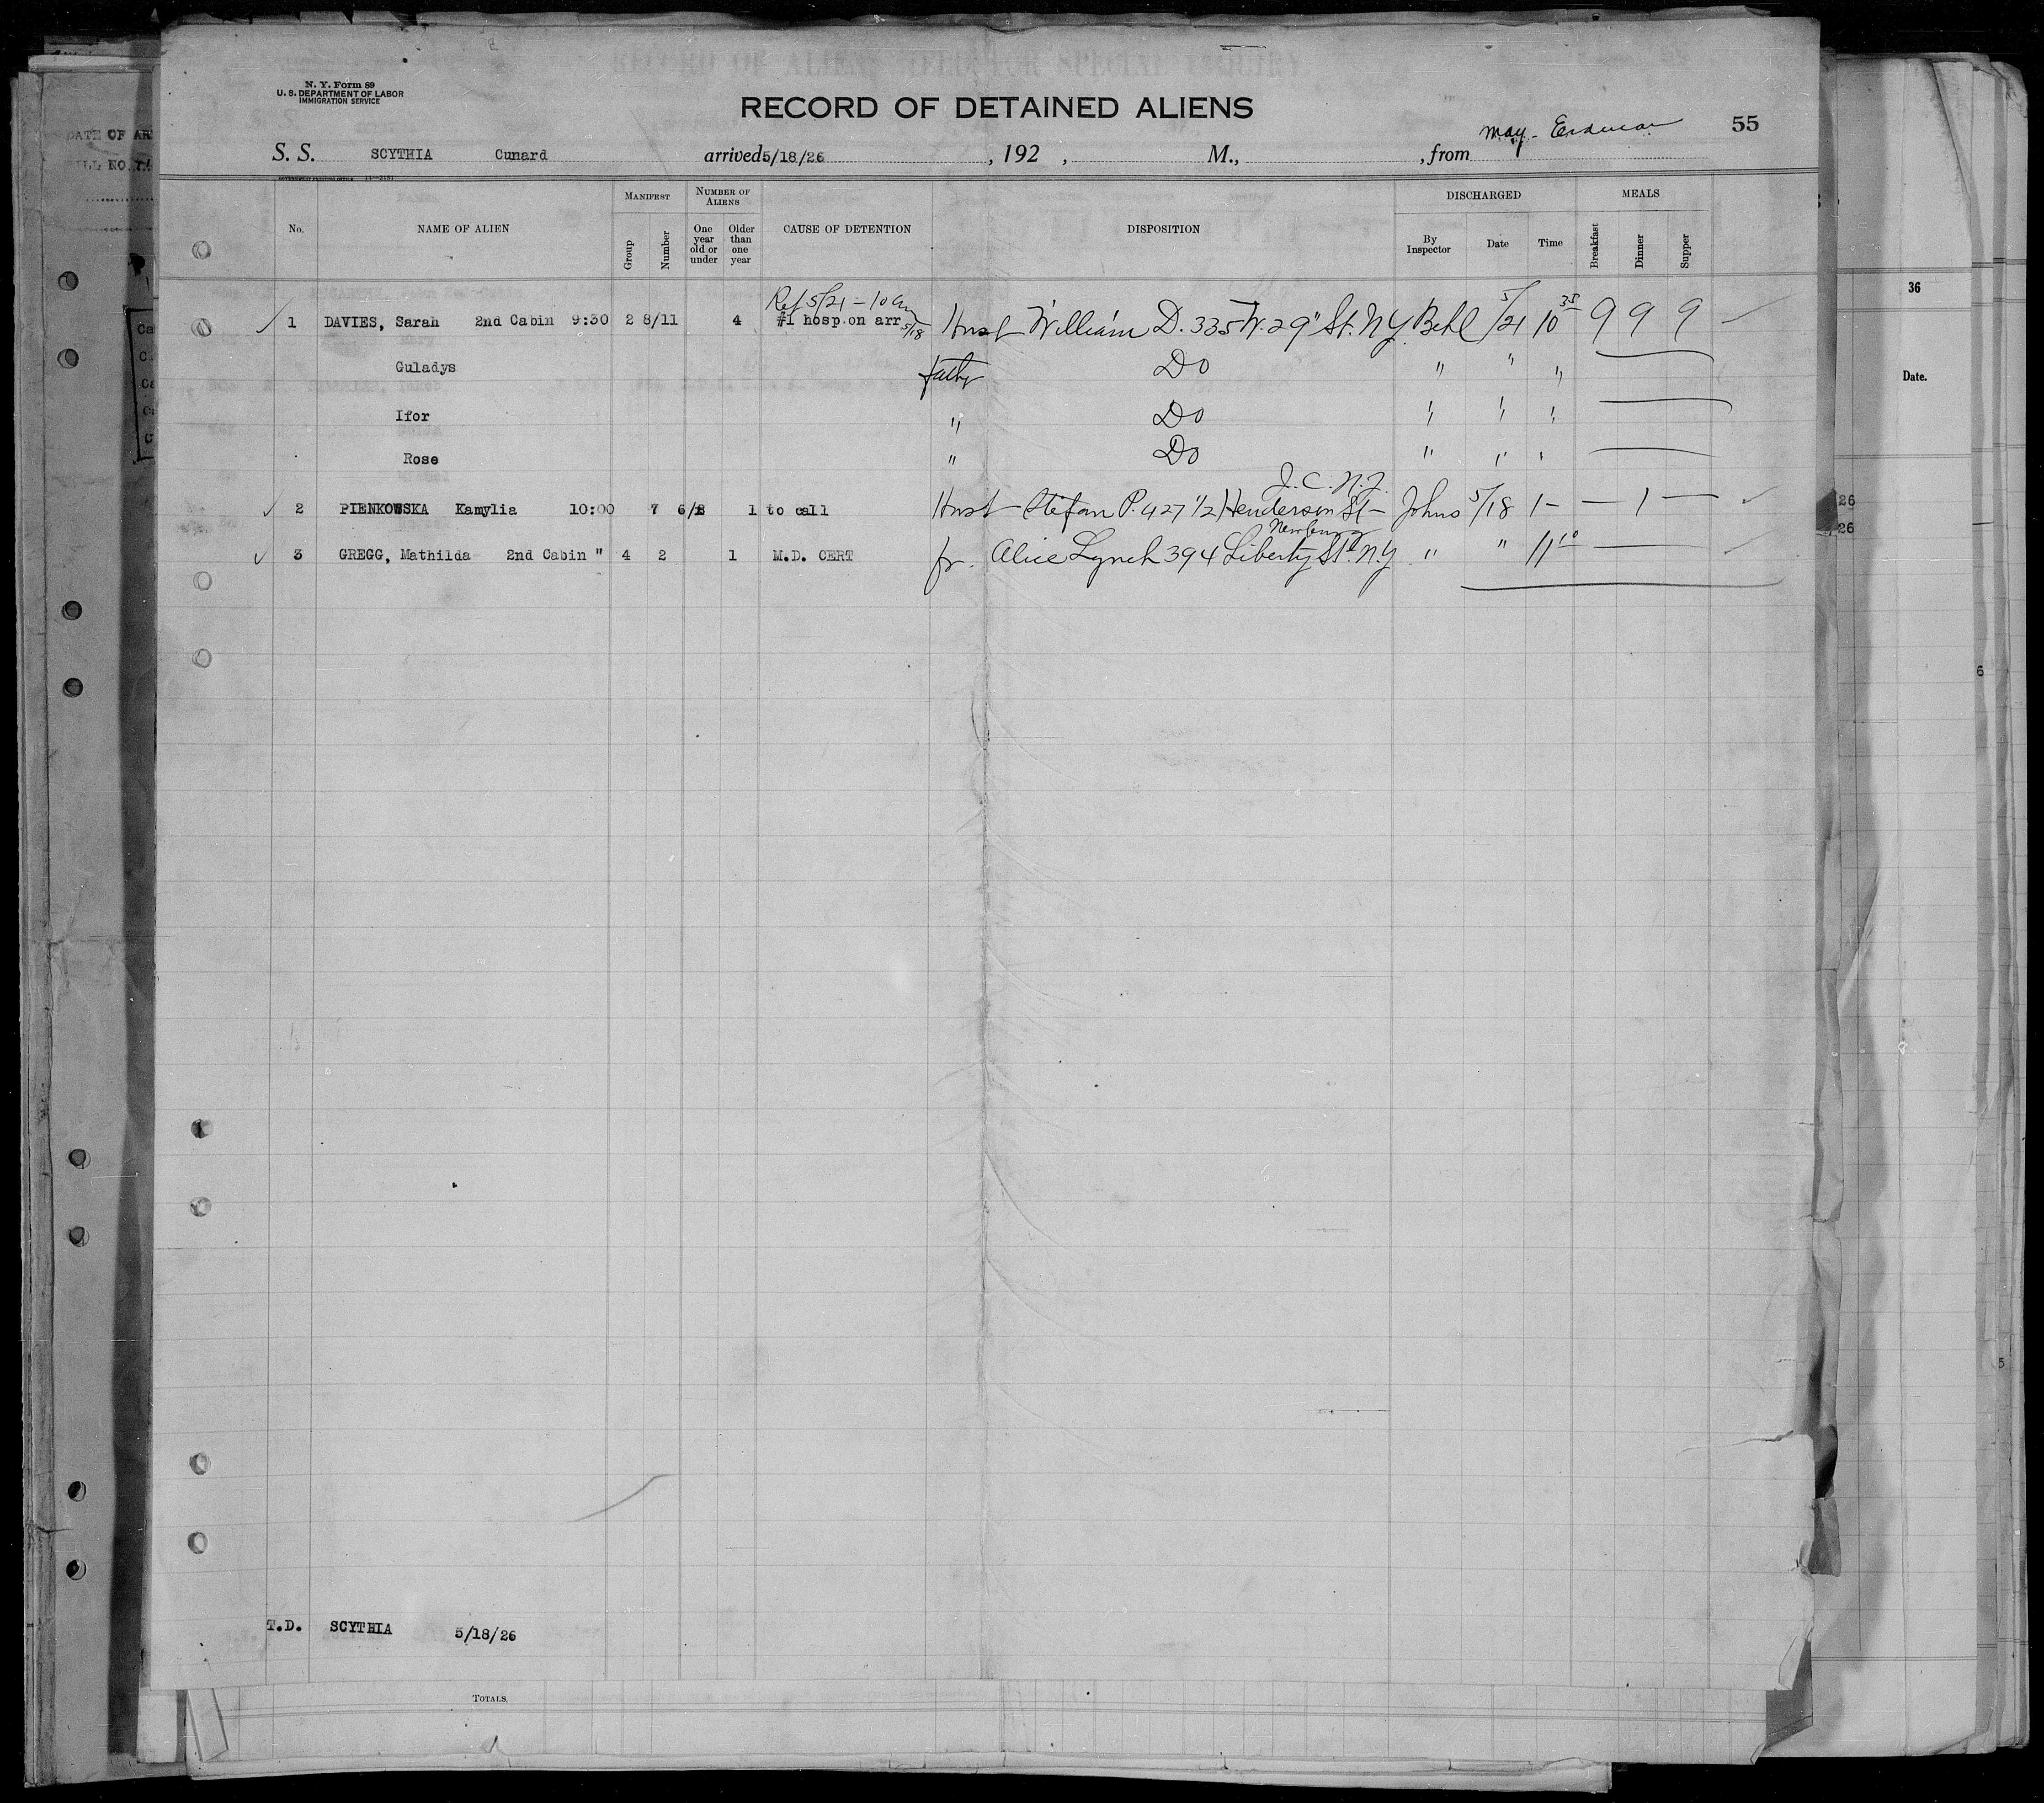 N. Y. Form 89
U. S. DEPARTMENT OF LABOR
IMMIGRATION SERVICE
RECORD OF DETAINED ALIENS
55
S. S. SCYTHIA Cunard arrived 5/18/26, 192 , M., , from May-
No. NAME OF ALIEN MANIFEST Group Number NUMBER OF ALIENS One year old or under Older than one year CAUSE OF DETENTION DISPOSITION DISCHARGED By Inspector Date Time MEALS Breakfast Dinner Supper
Ref 5/21 - 10 am
1 DAVIES, Sarah 2nd Cabin 9:30 2 8/11 4 #1 hosp.on arr 5/18 Husb William D. 335 W. 29" St. N Y. 5/21 10 35 9 9 9
Guladys father Do " " "
Ifor " Do " " "
Rose " Do " " "
J. C. N. J.
2 PIENKOWSKA Kamylia 10:00 7 6/8 1 to call Husb Stefan P. 427 1/2 Henderson St - Johns 5/18 1 - - 1 -
Newburg
3 GREGG, Mathilda 2nd Cabin " 4 2 1 M.D. CERT fr. Alice Lynch 394 Liberty St. N.Y. " " 11 10
T.D. SCYTHIA 5/18/26
TOTALS.
DATE OF
36
Date.
26
26
6
5